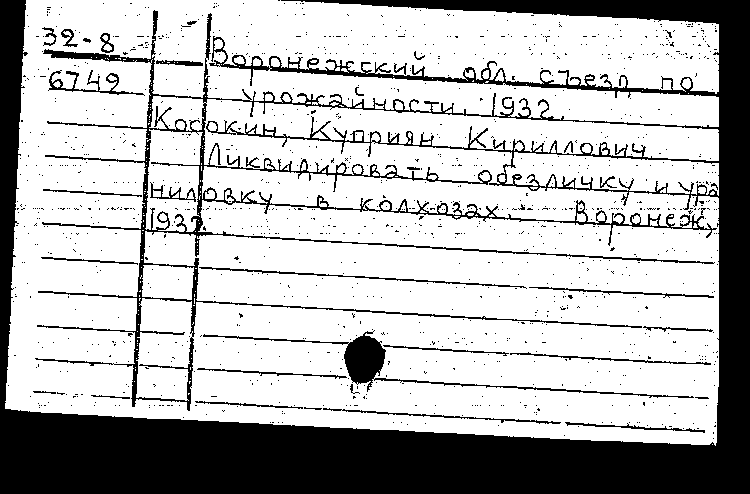 32-8
Воронежский обл. съезд по
6749
урожайности. 1932.
Косокин, Куприян Кириллович
Ликвидировать обезличку и ура
ниловку в колхозах. Воронеж,
1932.